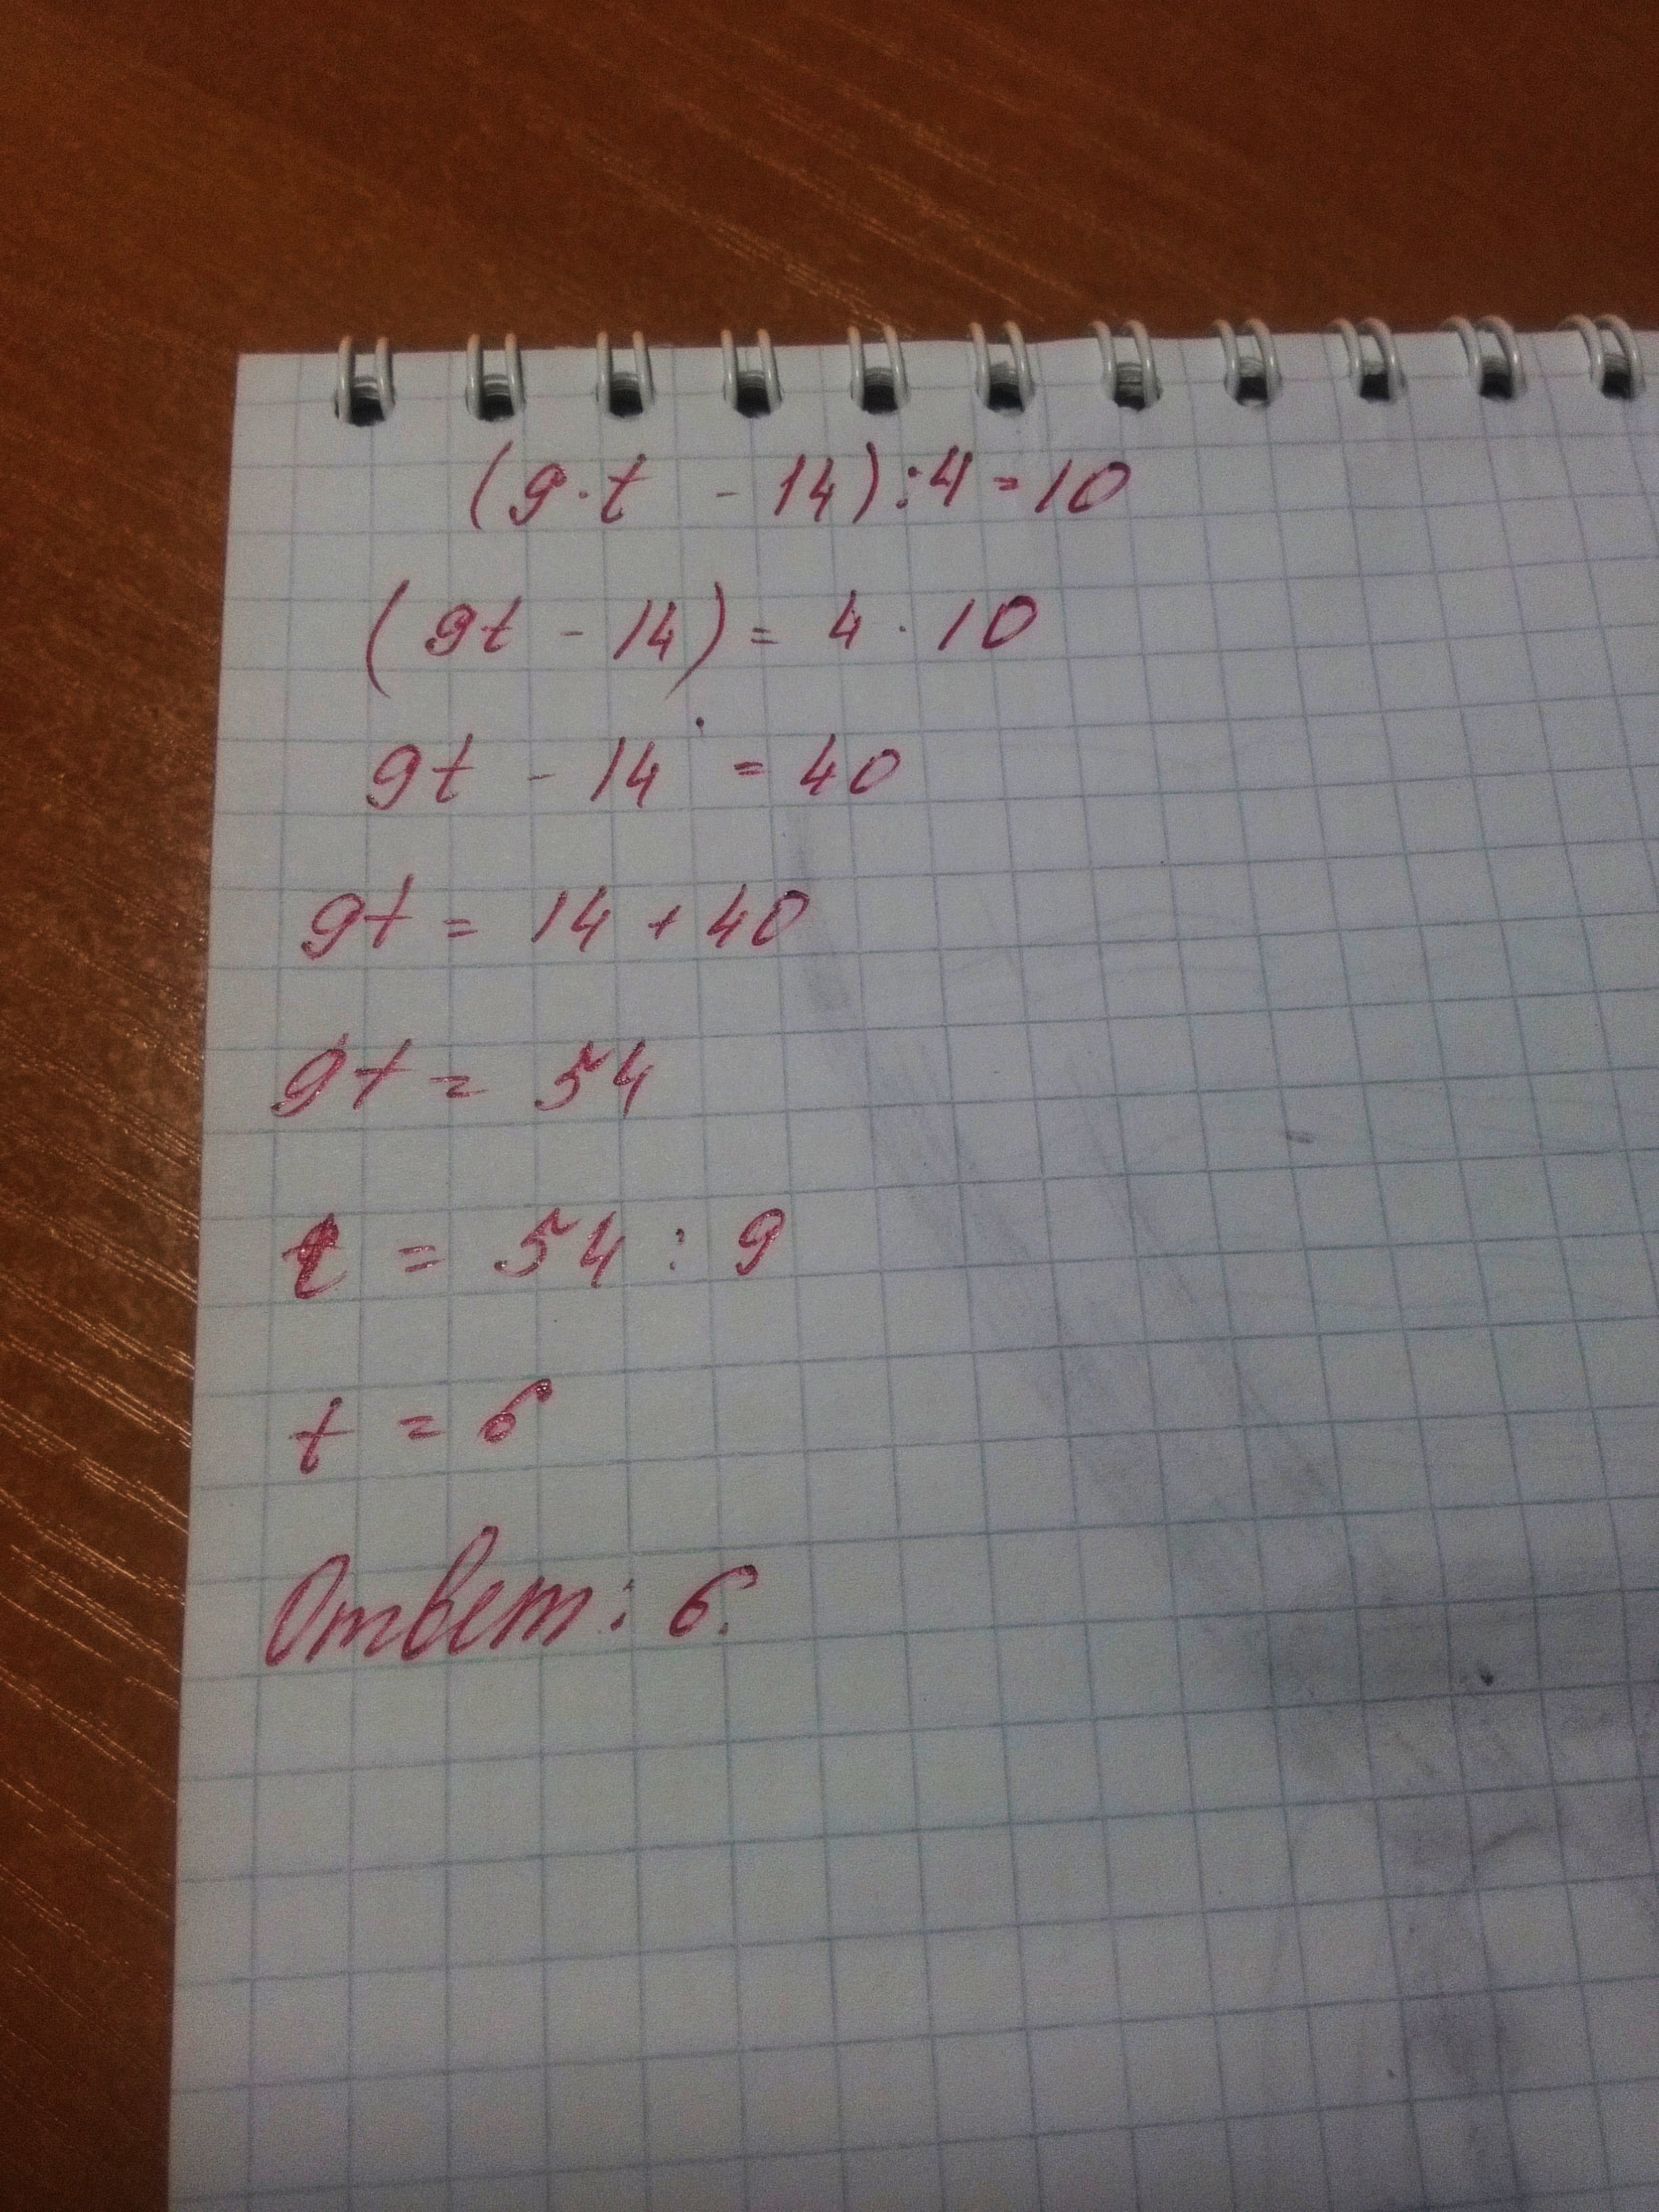 (9·t - 14):4=10
(9t - 14) = 4 · 10
9t - 14 = 40
9t = 14 + 40
9t = 54
t = 54 : 9
t = 6
Ответ: 6.